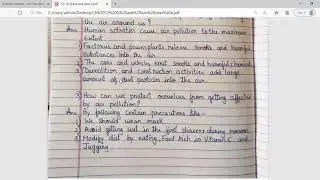 the air around us?
Ans Human activities cause air pollution to the maximum
extent.
1) Factories and powerplants release smoke and harmful
Substances into the air.
2) The cars and vehicles emit smoke and harmful chemicals
3) Demolition and construction activities add large
amount of dust particles into the
3) How can we protect ourselves from getting affected
by air pollution?
Ans By following certain precautions like-
1) We should wear mask.
2) Avoid getting wet in the first showers during monsoon.
3) Modify diet by eating Food Rich in Vitamin C and
Jaggery.